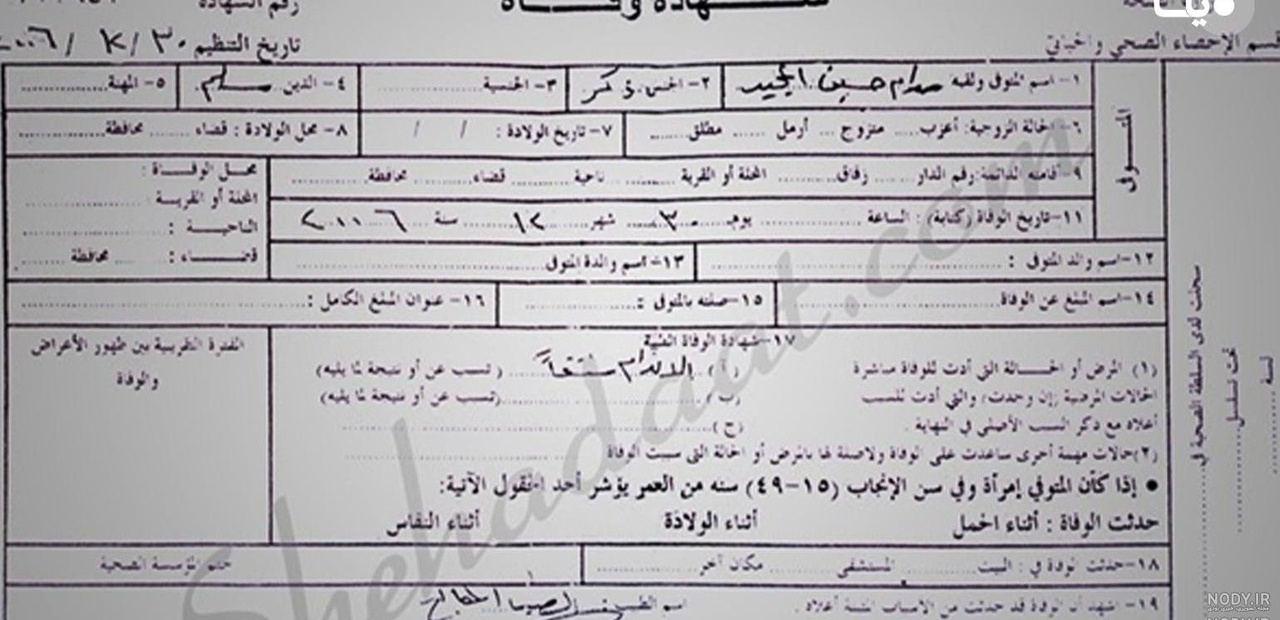 شهادة وفاة
رقم الشهادة
قسم الإحصاء الصحي والحياتي
تاريخ التنظيم ٣٠ / ١٢ / ٢٠٠٦
المتوفى
١- اسم المتوفى ولقبه صدام حسين المجيد
٢- الجنس ذكر
٣- الجنسية
٤- الدين مسلم
٥- المهنة
٦- الحالة الزوجية: أعزب.... متزوج ... أرمل ...... مطلق ......
٧- تاريخ الولادة : / /
٨- محل الولادة : قضاء ...... محافظة
٩- أقامته الدائمة: رقم الدار ...... زقاق ...... المحلة أو القرية ...... ناحية ...... قضاء ...... محافظة
محل الوفاة :
المحلة أو القرية :
الناحية :
قضاء : ...... محافظة
١١- تاريخ الوفاة (كتابة) : الساعة ...... يوم ٣٠ شهر ١٢ سنة ٢٠٠٦
١٢- اسم والد المتوفى :
١٣- اسم والدة المتوفى
١٤- اسم المبلغ عن الوفاة
١٥- صفته بالمتوفى :
١٦- عنوان المبلغ الكامل :
١٧- شهادة الوفاة الطبية
الفترة التقريبية بين ظهور الأعراض
والوفاة
(١) المرض أو الحالة التي أدت للوفاة مباشرة (أ) الاعدام شنقاً (تسبب عن أو نتيجة لما يليه)
الحالات المرضية (إن وجدت) والتي أدت للسبب (ب) (تسبب عن أو نتيجة لما يليه)
أعلاه مع ذكر السبب الأصلي في النهاية . (ج)
(٢) حالات مهمة أخرى ساعدت على الوفاة ولاصلة لها بالمرض أو الحالة التي سببت الوفاة
• إذا كان المتوفي إمرأة وفي سن الإنجاب (١٥-٤٩) سنه من العمر يؤشر أحد الحقول الآتية:
حدثت الوفاة : أثناء الحمل أثناء الولادة أثناء النفاس
١٨- حدثت الوفاة في : البيت ...... المستشفى ...... مكان آخر
ختم المؤسسة الصحية
١٩- اشهد أن الوفاة قد حدثت من الأسباب المبينة أعلاه . اسم الطبيب
سجلت لدى السلطة الصحية في
تحت تسلسل
لسنة
Shehadaat.com
NODY.IR